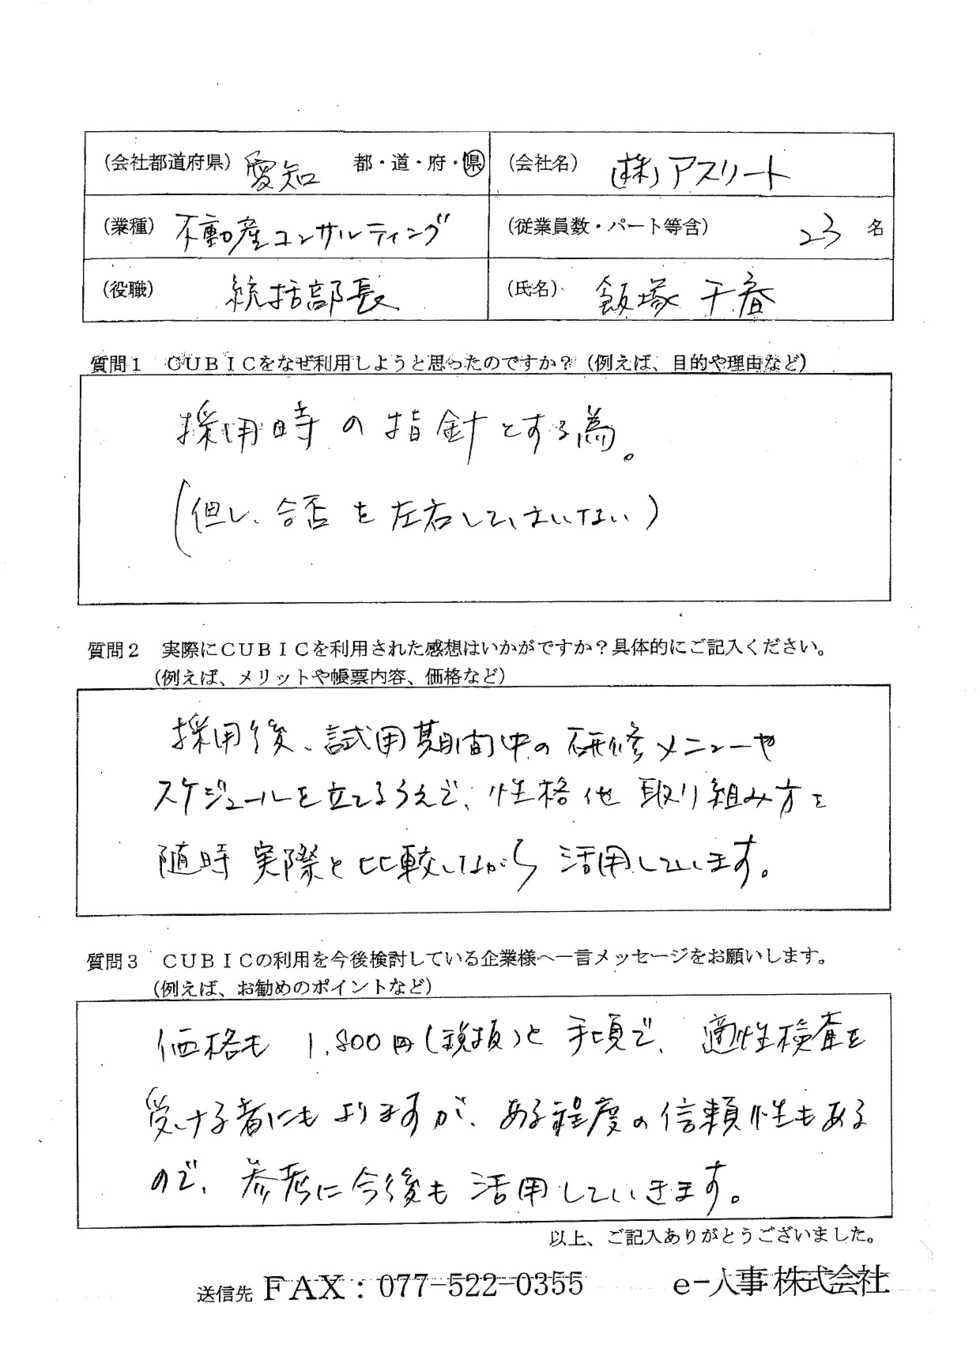 (会社都道府県) 愛知 都・道・府・県
(会社名) (株)アスリート
(業種) 不動産コンサルティング
(従業員数・パート等含) 23 名
(役職) 統括部長
(氏名) 飯塚 千春
質問1 CUBICをなぜ利用しようと思ったのですか?(例えば、目的や理由など)
採用時の指針とする為。
(但し、合否を左右してはいない)
質問2 実際にCUBICを利用された感想はいかがですか?具体的にご記入ください。
(例えば、メリットや帳票内容、価格など)
採用後、試用期間中の研修メニューや
スケジュールを立てるうえで、性格他取り組み方を
随時実際と比較しながら活用しています。
質問3 CUBICの利用を今後検討している企業様へ一言メッセージをお願いします。
(例えば、お勧めのポイントなど)
価格も1,800円(税抜)と手頃で、適性検査を
受ける者にもよりますが、ある程度の信頼性もある
ので、参考に今後も活用していきます。
以上、ご記入ありがとうございました。
送信先 FAX:077-522-0355 e-人事株式会社